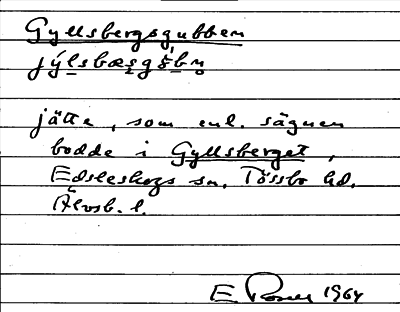 Gyllsbergsgubben
jätte, som enl. sägnen
bodde i Gyllsberget,
Edsleskogs sn. Tössbo hd.
Älvsb. l.
E 1964